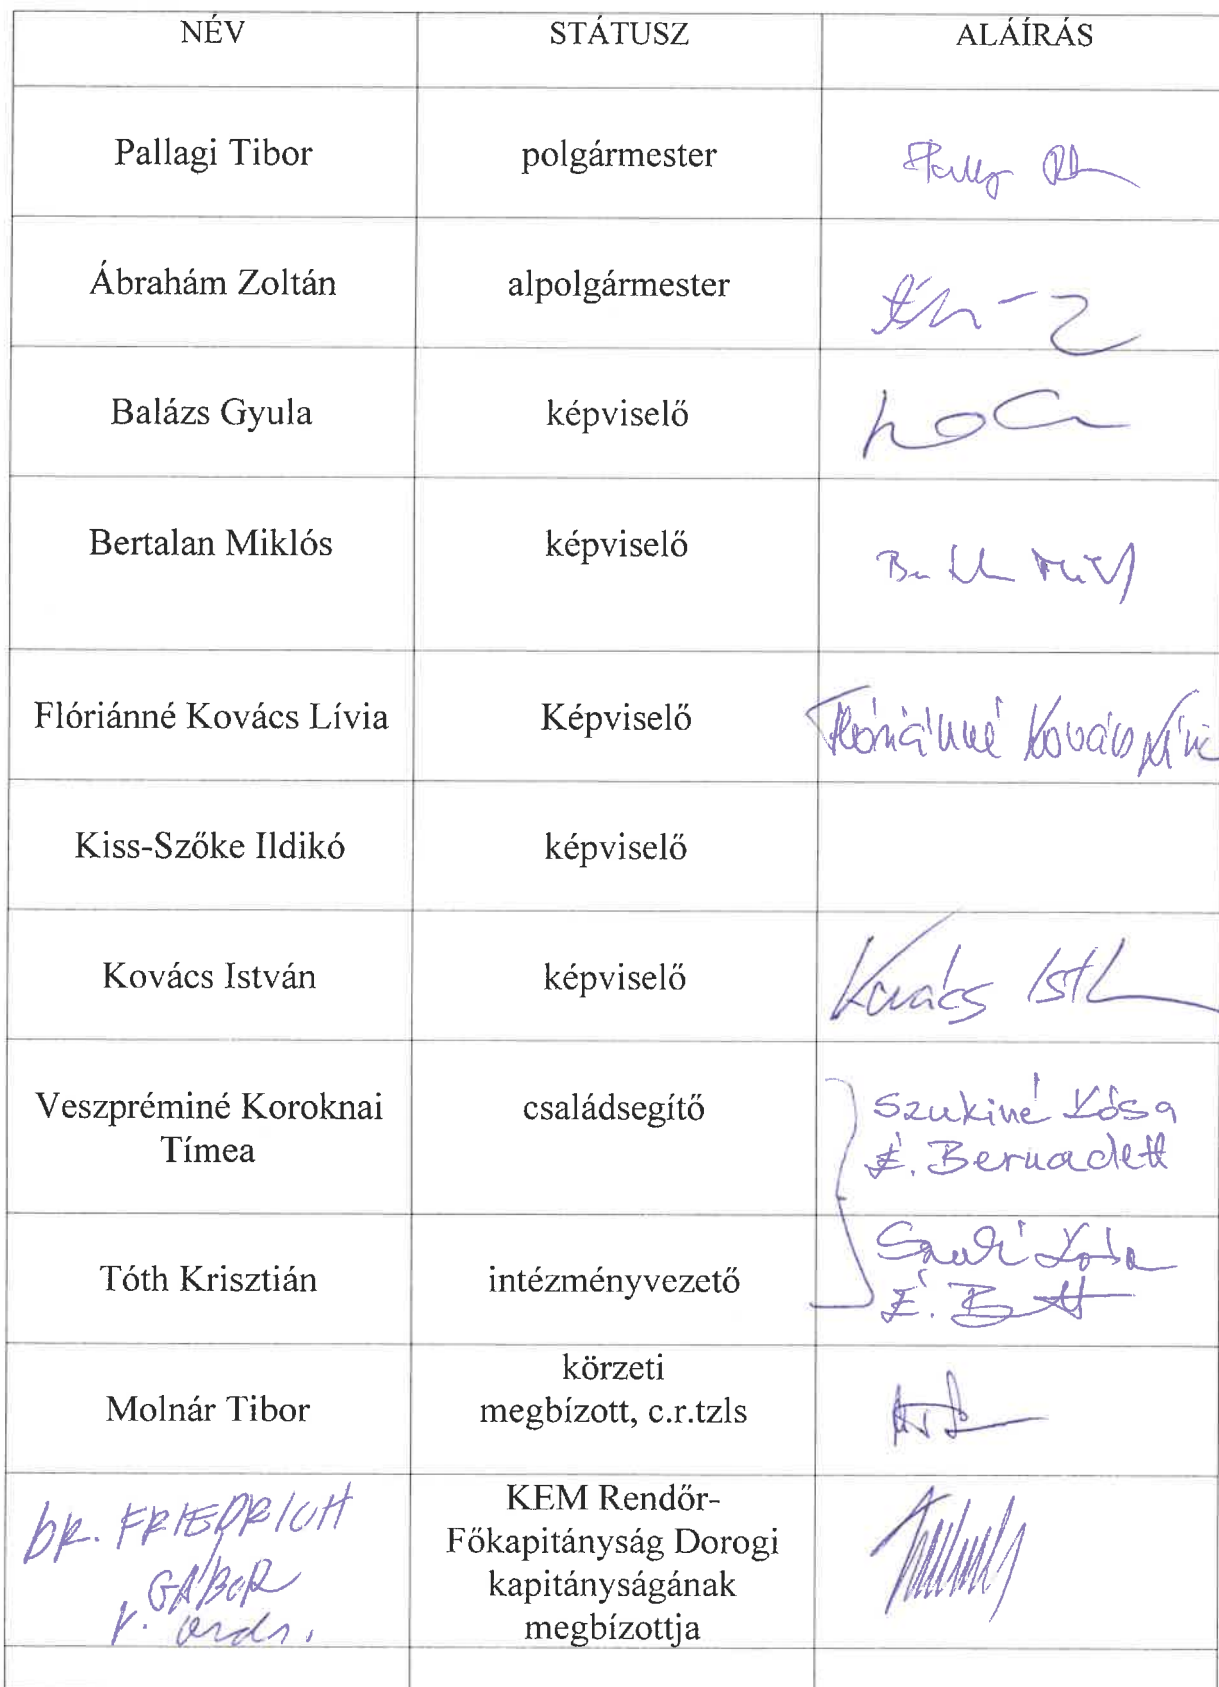 NÉV STÁTUSZ ALÁÍRÁS
Pallagi Tibor polgármester
Ábrahám Zoltán alpolgármester
Balázs Gyula képviselő
Bertalan Miklós képviselő
Flóriánné Kovács Lívia Képviselő Flóriánné Kovács Lívia
Kiss-Szőke Ildikó képviselő
Kovács István képviselő Kovács
Veszpréminé Koroknai családsegítő Szukiné Kósa
Tímea É. Bernadett
Tóth Krisztián intézményvezető
körzeti
Molnár Tibor megbízott, c.r.tzls
DR. FRIEDRICH KEM Rendőr-
GÁBOR Főkapitányság Dorogi
r. kapitányságának
megbízottja